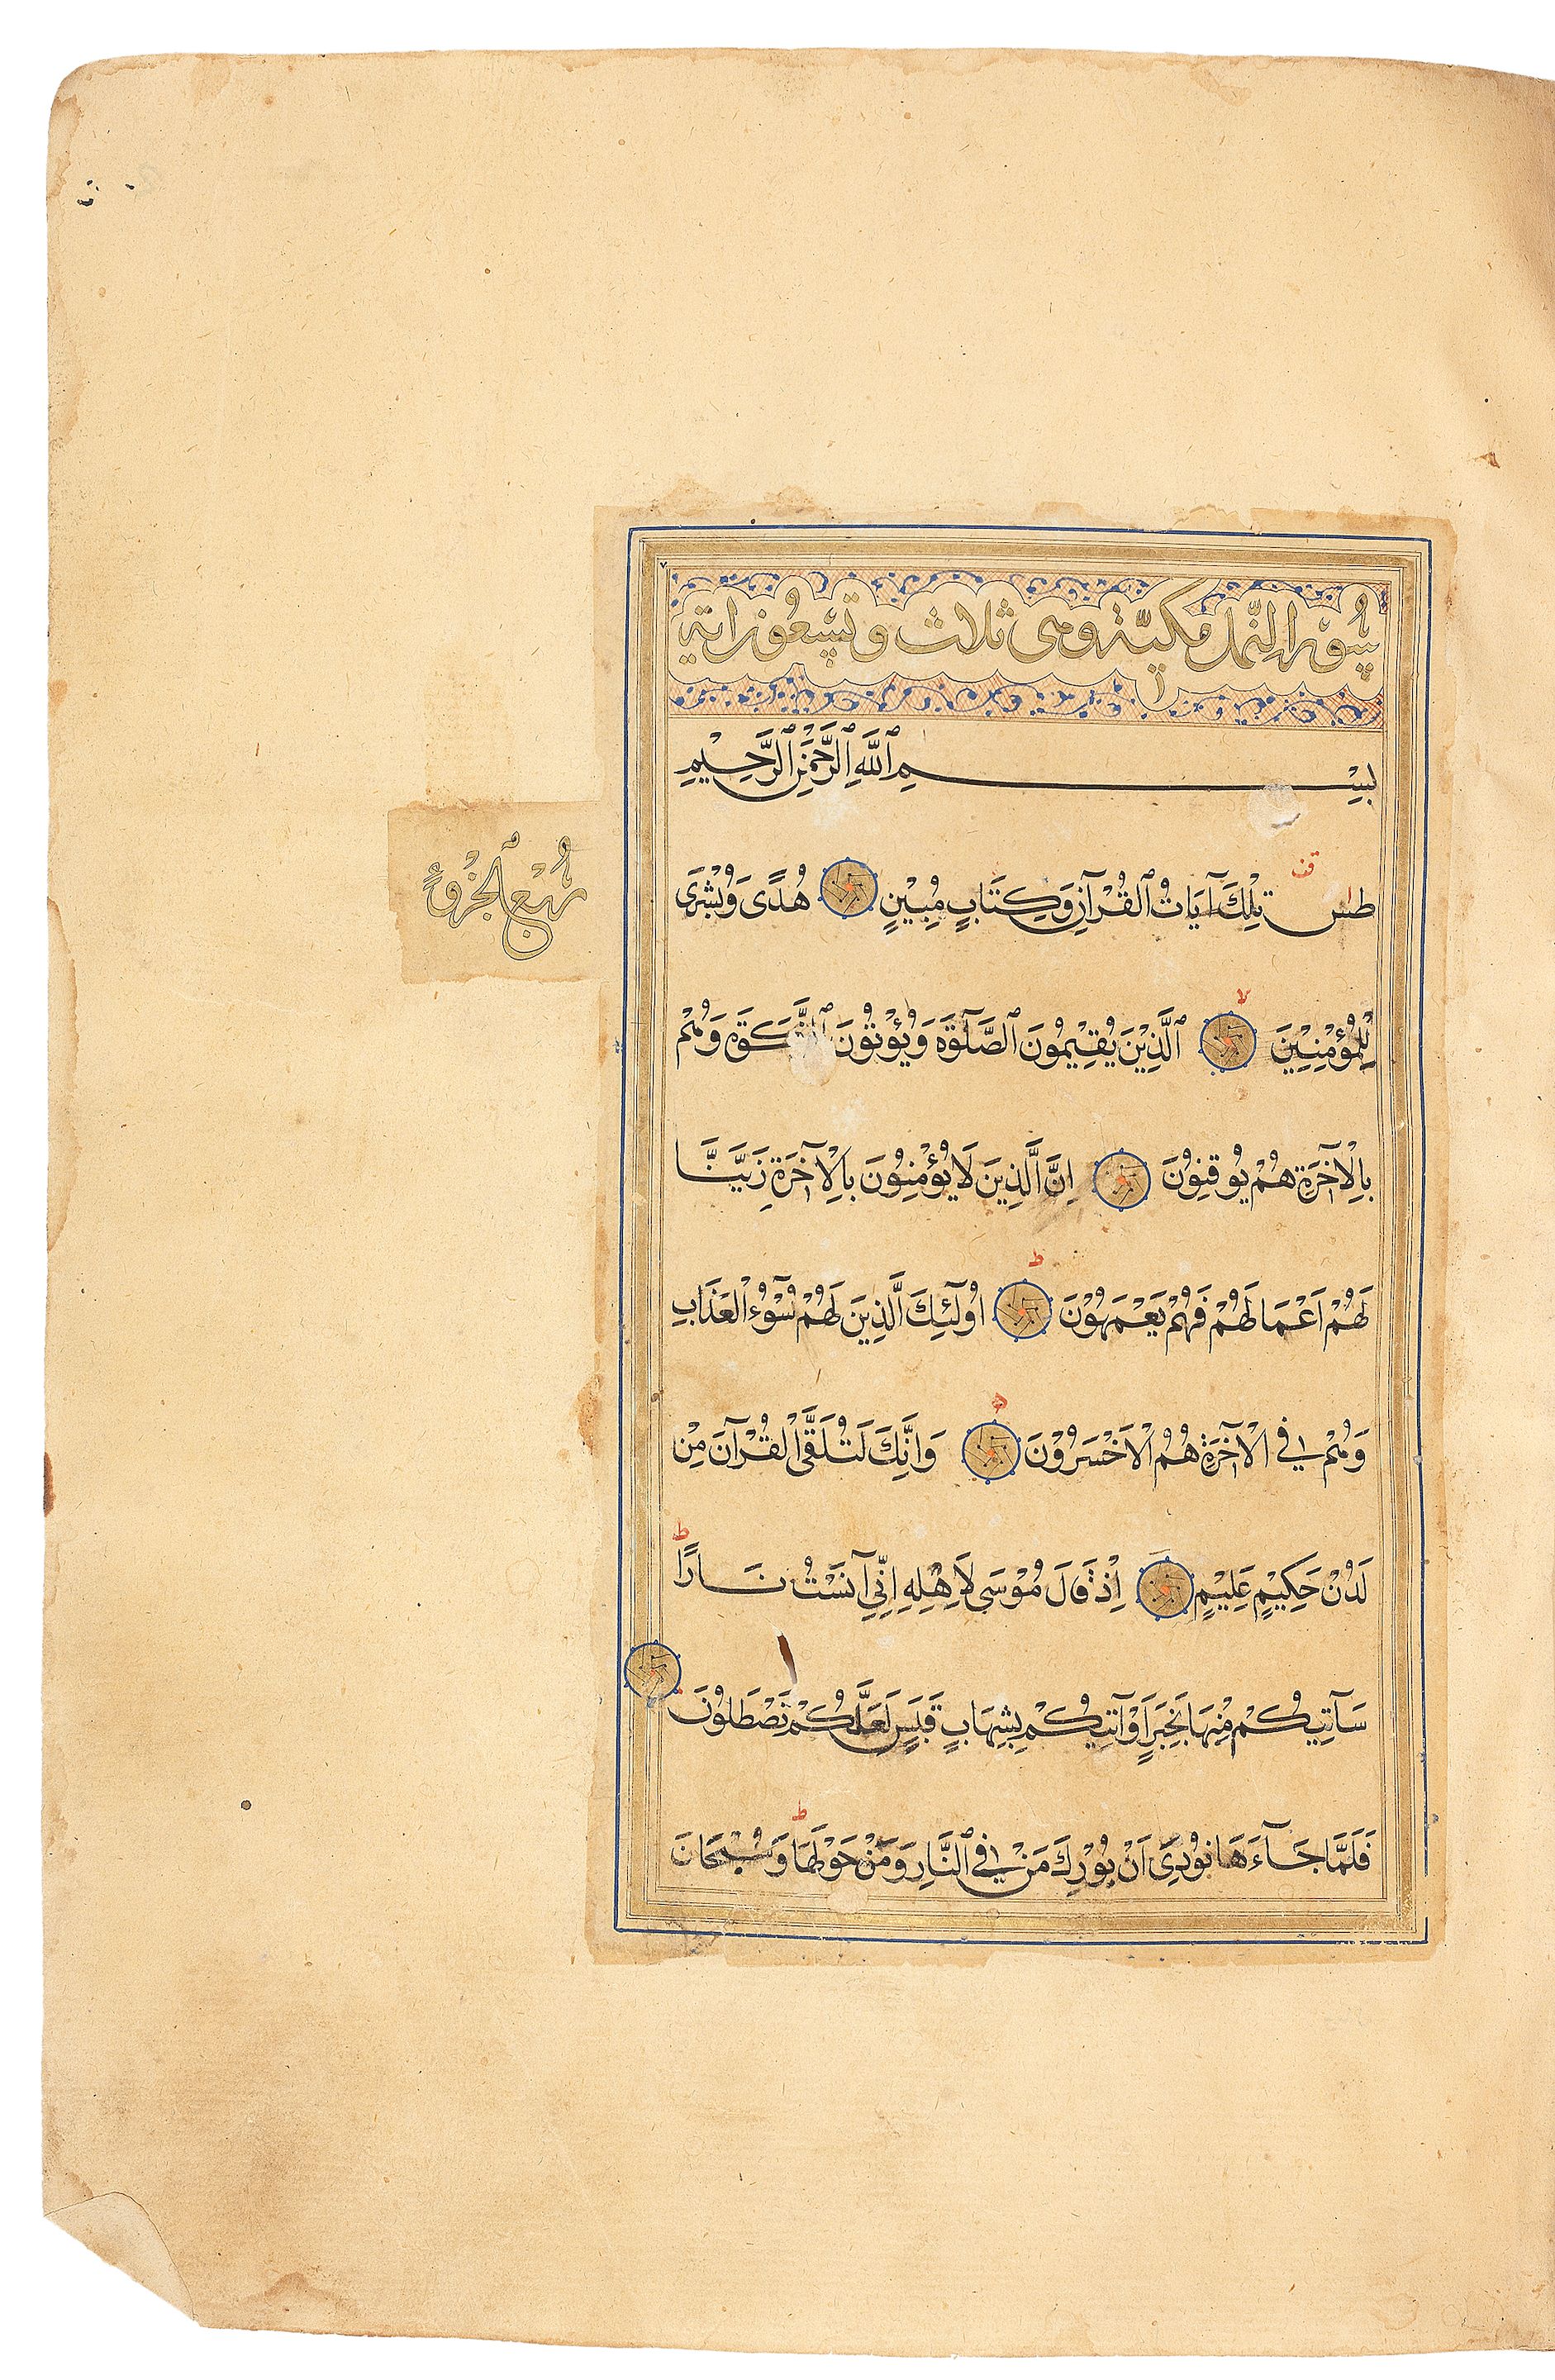 سورة النمل مكية وهي ثلاث وتسعون اية
بِسْمِ ٱللَّهِ ٱلرَّحْمَٰنِ ٱلرَّحِيْمِ
قف
طس تِلْكَ آيَاتُ ٱلْقُرْآنِ وَكِتَابٍ مُبِيْنٍ هُدًى وَبُشْرَى
رُبْعُ ٱلْجُزْوِ
لا
لِلْمُؤْمِنِيْنَ ٱلَّذِيْنَ يُقِيْمُونَ ٱلصَّلَوٰةَ وَيُؤْتُونَ ٱلزَّكَوٰةَ وَهُمْ
بِالْآخِرَةِ هُمْ يُوقِنُوْنَ اِنَّ الَّذِيْنَ لَا يُؤْمِنُوْنَ بِالْآخِرَةِ زَيَّنَّا
ط
لَهُمْ اَعْمَالَهُمْ فَهُمْ يَعْمَهُوْنَ اُولَٰٓئِكَ الَّذِيْنَ لَهُمْ سُوْٓءُ الْعَذَابِ
وَهُمْ فِي الْآخِرَةِ هُمُ الْاَخْسَرُوْنَ وَاِنَّكَ لَتُلَقَّى الْقُرْآنَ مِنْ
ط
لَدُنْ حَكِيْمٍ عَلِيْمٍ اِذْ قَالَ مُوْسَى لِاَهْلِهِ اِنِّي آنَسْتُ نَارًا
سَآتِيْكُمْ مِنْهَا بِخَبَرٍ اَوْ آتِيْكُمْ بِشِهَابٍ قَبَسٍ لَعَلَّكُمْ تَصْطَلُوْنَ
ط
فَلَمَّا جَآءَهَا نُوْدِيَ اَنْ بُوْرِكَ مَنْ فِي ٱلنَّارِ وَمَنْ حَوْلَهَا وَسُبْحَانَ